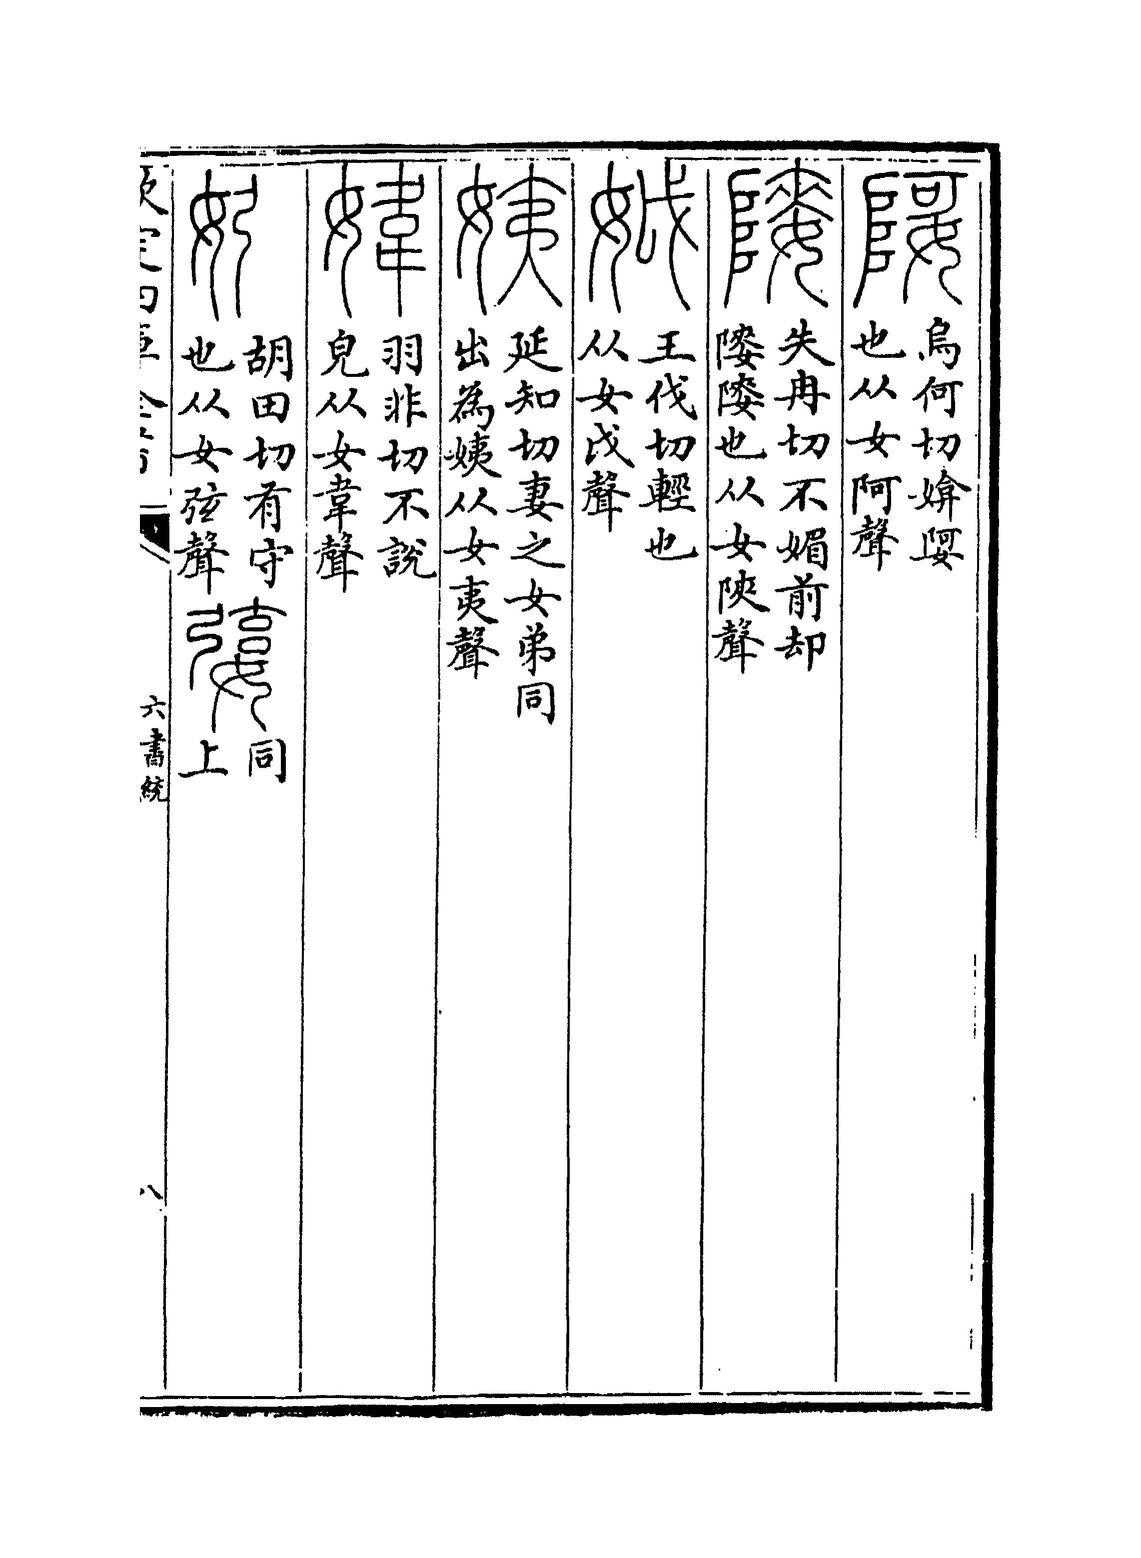 烏何切婠娿
也从女阿聲
失冉切不媚前却
㛍㛍也从女陝聲
王伐切輕也
从女戉聲
延知切妻之女弟同
出為姨从女夷聲
羽非切不說
皃从女韋聲
胡田切有守
也从女弦聲
同
上
欽定四庫全書
六書統
八